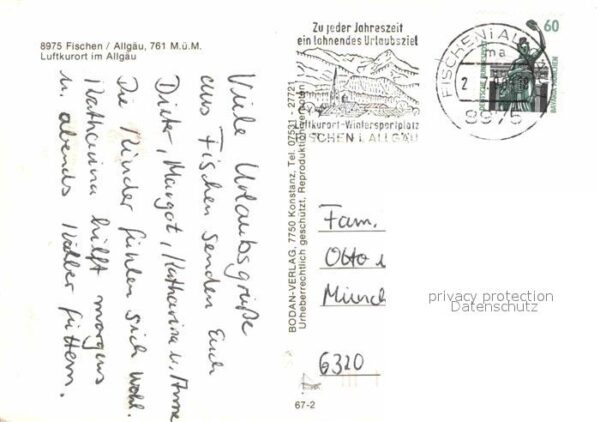 8975 Fischen / Allgäu, 761 M.ü.M.
Luftkurort im Allgäu
Viele Urlaubsgrüße
aus Fischen senden Euch
Dieter, Margot, Katharina u. Anne
Die Kinder fühlen sich wohl.
Katharina hilft morgens
u. abends Kälber füttern.
BODAN-VERLAG, 7750 Konstanz, Tel. 07531 - 27721
Urheberrechtlich geschützt, Reproduktion verboten
Zu jeder Jahreszeit
ein lohnendes Urlaubsziel
Luftkurort-Wintersportplatz
FISCHEN I. ALLGÄU
FISCHEN i ALL
ma
2
8975
60
Fam.
Otto
Münch
6320
privacy protection
Datenschutz
67-2